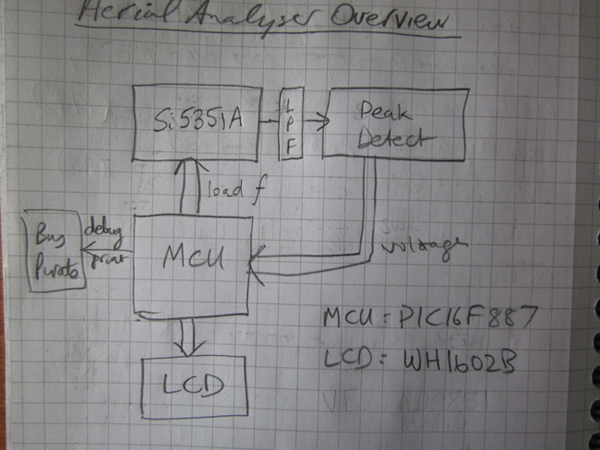 Aerial Analyser Overview
Si5351A
LPF
Peak
Detect
load f
Bus
Pirate
debug
print
MCU
voltage
MCU: PIC16F887
LCD: WH1602B
LCD